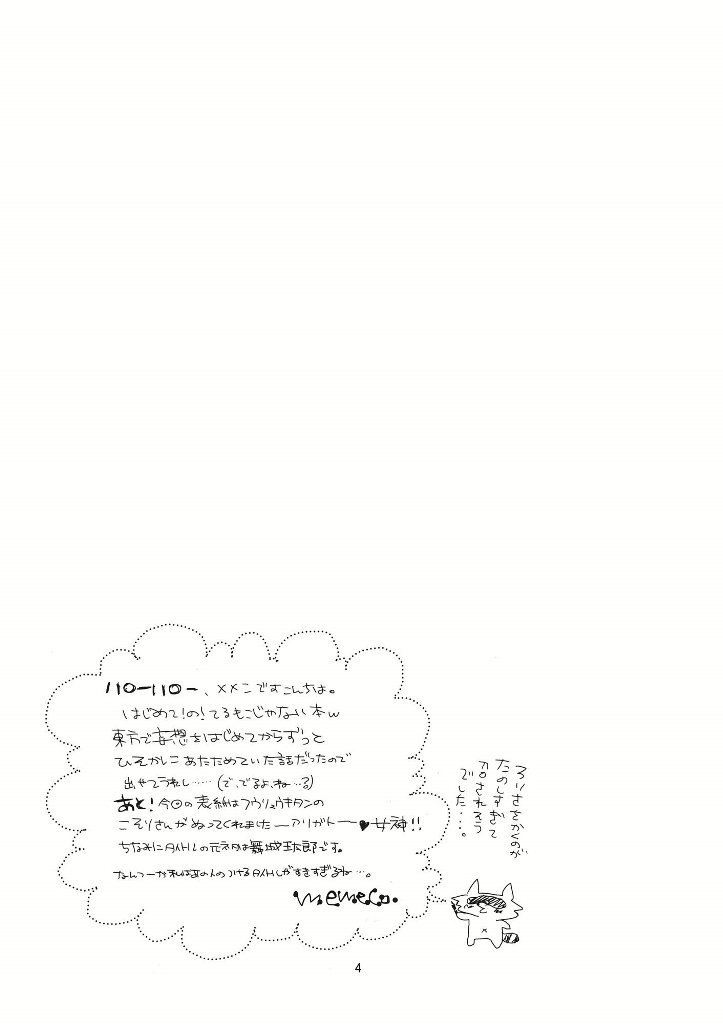 ハローハロー、××こですこんちは。
はじめて!の!てるもこじゃない本w
東方で妄想をはじめてからずっと
ひそかにあたためていた話だったので
出せてうれし……(で、でるよ、ね…る)
あと!今回の表紙はフウリュウキタンの
こそりさんがぬってくれましたーアリガトー♥女神!!
ちなみにタイトルの元ネタは舞城王太郎です。
なんつーか私はあの人のつけるタイトルがすきすぎるね…。
memeco.
ろりさをかくのが
たのしすぎて
されそう
でした…。
4